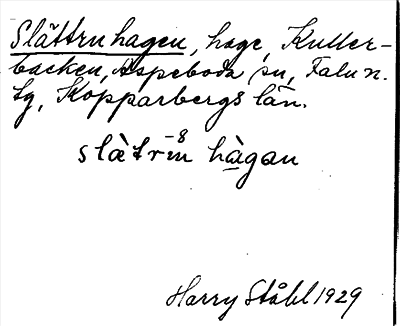 Slättruhagen, hage, Kuller-
backen, Aspeboda sn, Falu n.
tg, Kopparbergs län.
slàtrun hàgan
Harry Ståhl 1929